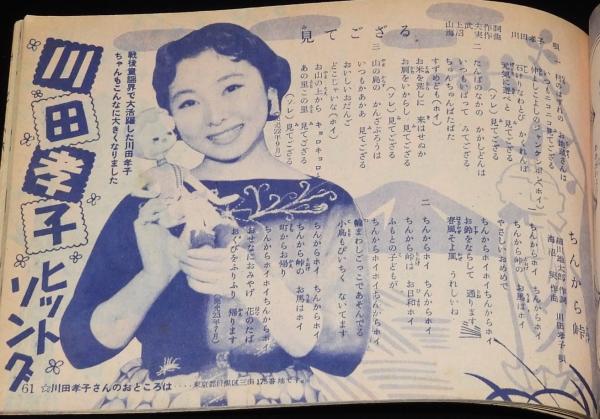 川田孝子ヒットソング
戦後童謡界で大活躍した川田孝子
ちゃんもこんなに大きくなりました
見てござる
川田孝子 唄
村のはずれの お地蔵さんは
いつもニコニコ 見てござる
仲よしこよしの ジャンケンポン(ホイ)
石けりなわとび かくれんぼ
元気に遊べと 見てござる
(ソレ) 見てござる
二 たんぼのなかの かかしどんは
ちゅんちゅんばたばた
すずめども(ホイ)
お米を荒しに 来はせぬか
お肩をいからし 見てござる
(ソレ) 見てござる
三 山の烏の かんざぶろうは
いつもかあかあ 見てござる
おいしいおだんご
どこじゃいな(ホイ)
お山の上から キョロキョロと
あの里この里 見てござる
(ソレ) 見てござる
ちんから峠
細川雄太郎作詞
海沼実作曲
川田孝子唄
ちんからホイ ちんからホイ
ちんから峠の お馬はホイ
やさしいおめめで
ちんからホイホイちんからホイ
お鈴をならして 通ります
春風そよ風 うれしいね
二 ちんからホイ ちんからホイ
ちんから峠は お日和ホイ
ふもとの子どもが
ちんからホイホイちんからホイ
輪まわしごっこであそんでる
小鳥もぴいちく ないてます
ちんからホイ ちんからホイ
ちんから峠の お馬はホイ
町からお帰り
ちんからホイホイちんからホイ
おせなにおみやげ 花のたば
おくびをふりふり 帰ります
61 ☆川田孝子さんのおところは‥‥東京都目黒区三田175番地です。